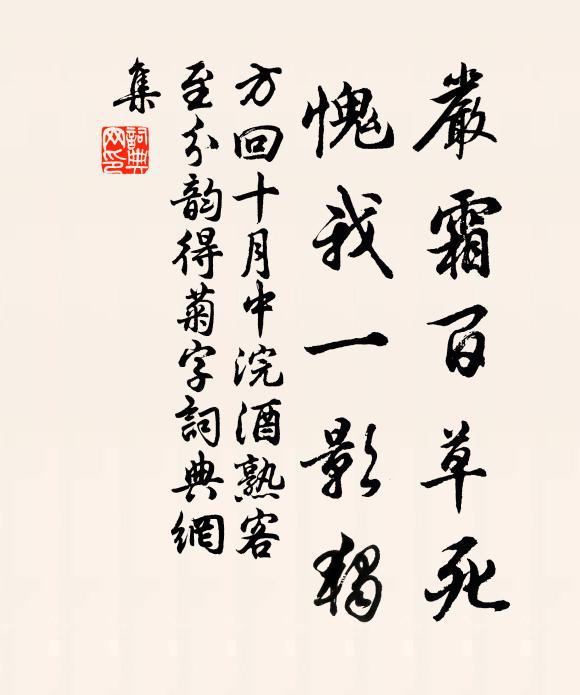 嚴霜百草死
愧我一影獨
方回十月中浣酒熟客
至分韵得菊字詞典網
集
詞典網印